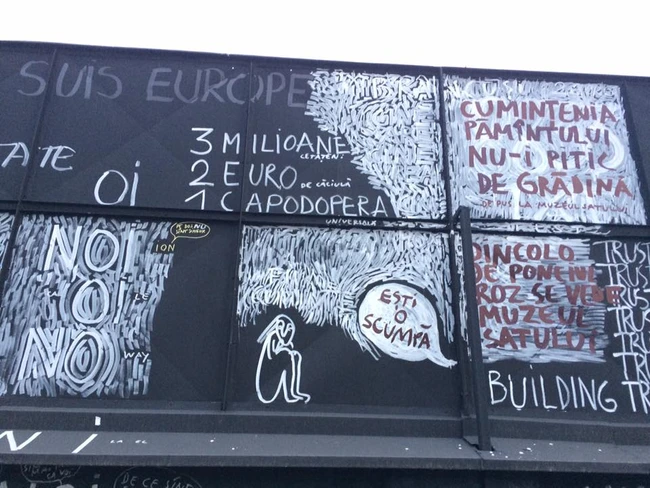 SUIS EUROPE
TATE
OI
3 MILIOANE
CETĂȚENI
2 EURO
DE CĂCIULĂ
1 CAPODOPERA
UNIVERSALĂ
CUMINȚENIA
PĂMÎNTULUI
NU-I PITIC
DE GRĂDINĂ
DE PUS LA MUZEUL SATULUI
NOI
OI
NO
WAY
ION
ESTI
O
SCUMPĂ
DINCOLO
DE PONCIVE
ROZ SE VEDE
MUZEUL
SATULUI
TRUST
TRUST
TRUST
TRUST
TRUST
TRUST
BUILDING TR
DE CE